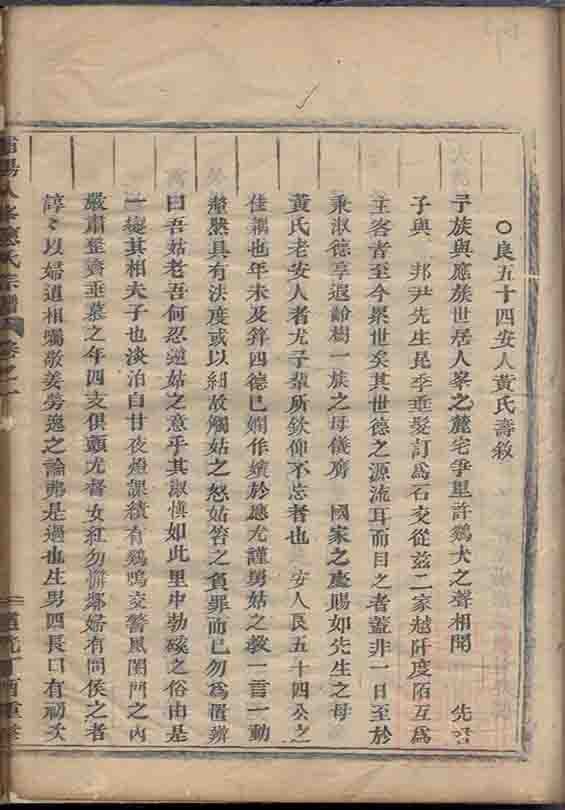 ○良五十四安人黃氏壽敘
予族與應族世居人峯之麓宅爭里許鷄犬之聲相聞 先君
子與 邦尹先生昆季垂髮訂爲石交從茲二家越阡度陌互爲
主客者至今累世矣其世德之源流耳而目之者蓋非一日至於
秉淑德享遐齡樹一族之母儀膺 國家之慶賜如先生之母
黃氏老安人者尤予輩所欽仰不忘者也 安人良五十四公之
佳耦也年未及笄四德已嫻作嬪於應尤謹舅姑之教一言一動
燦然具有法度或以細故觸姑之怒姑笞之負罪而已勿爲置辨
曰吾姑老吾何忍逆姑之意乎其淑愼如此里中勃磎之俗由是
一變其相夫子也淡泊自甘夜燈課績有鷄鳴交警風閨門之內
嚴肅整齊垂暮之年四支俱顫尤督女紅勿懈鄰婦有問侯之者
諄々以婦道相囑敬姜勞逸之論弗是過也生男四長曰有初次
八修應氏宗譜 卷之一
道光丁酉重修